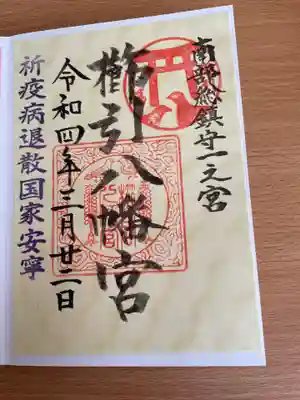 南部総鎮守一之宮
櫛引八幡宮
令和四年三月廿二日
祈疫病退散国家安寧